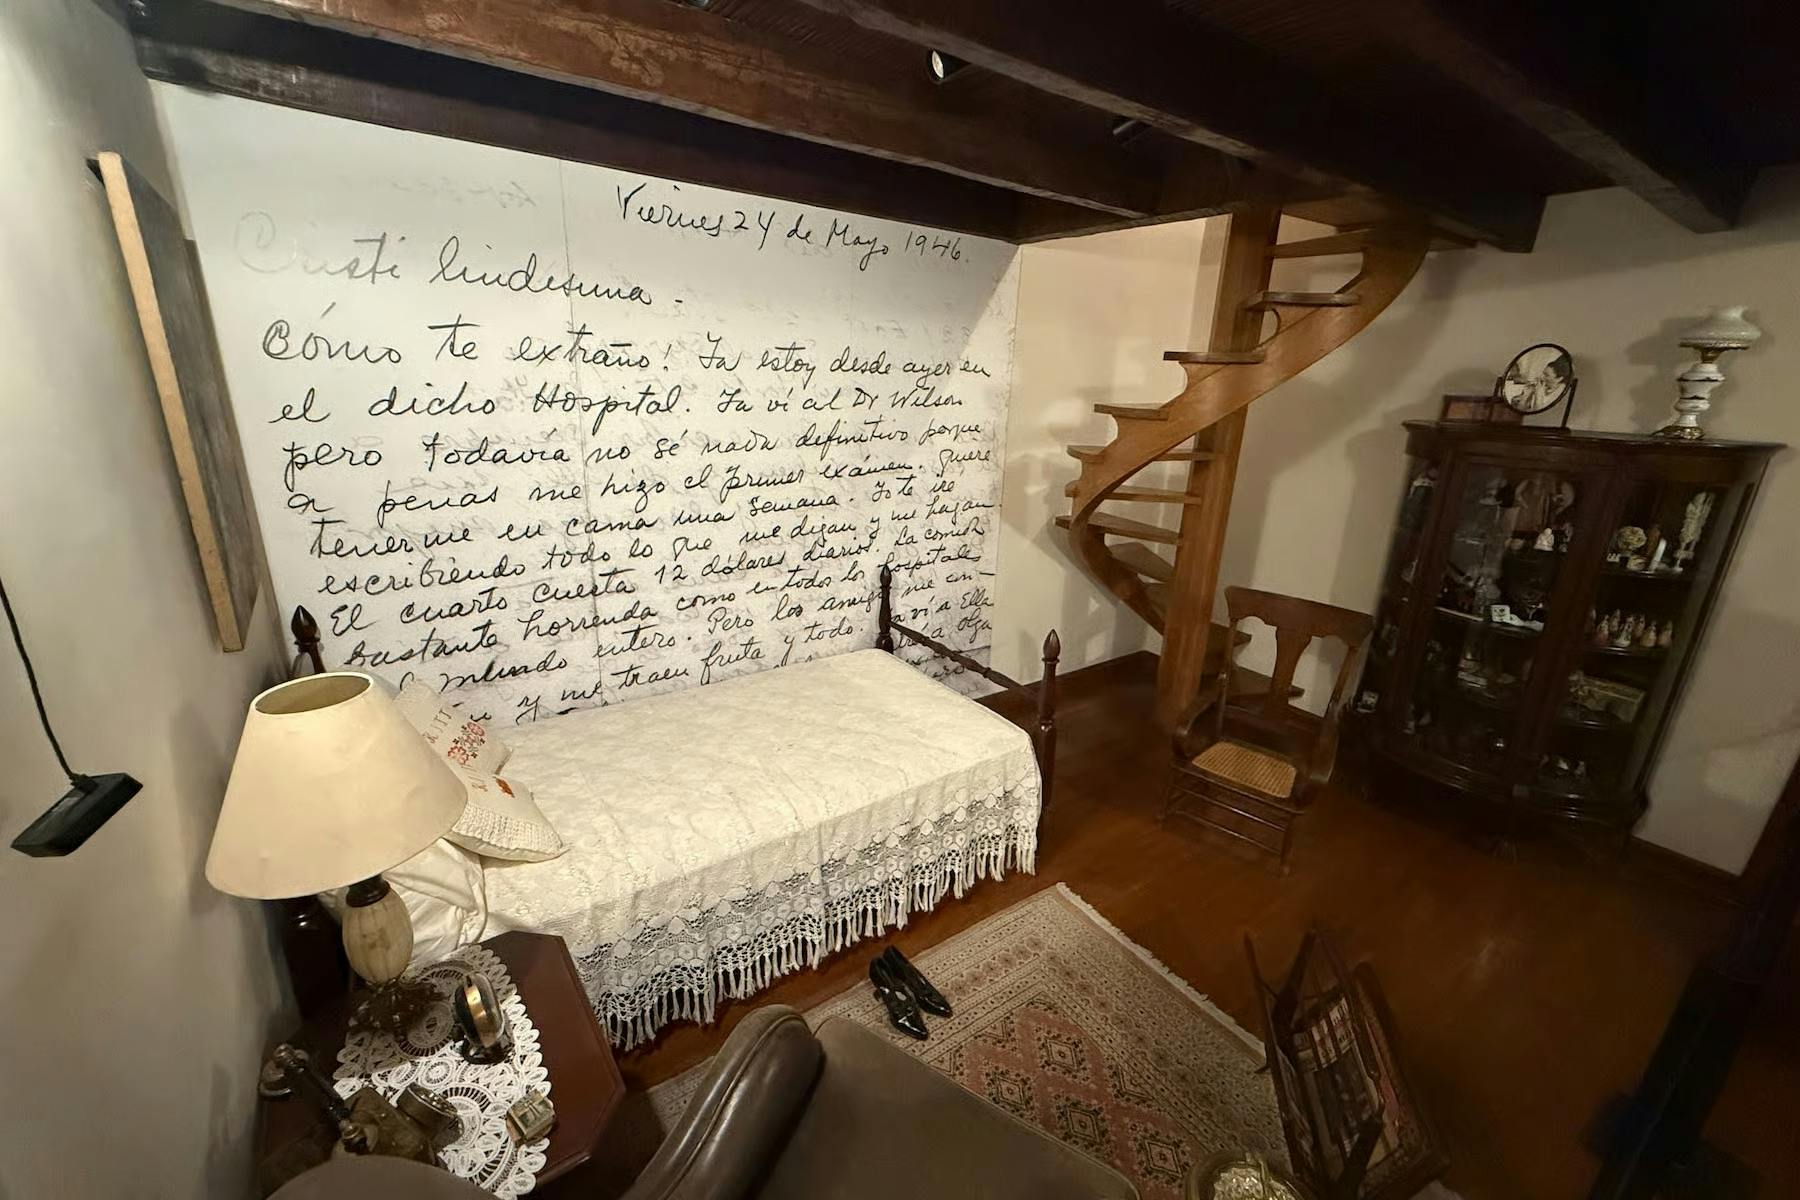 Viernes 24 de Mayo 1946.
Cristi lindísima -
Cómo te extraño! Ya estoy desde ayer en
el dicho Hospital. Ya ví al Dr Wilson
pero todavía no sé nada definitivo porque
a penas me hizo el primer exámen. Quiere
tenerme en cama una semana. Yo te iré
escribiendo todo lo que me digan y me hagan.
El cuarto cuesta 12 dólares diarios. La comida
bastante horrenda como en todos los hospitales
mundo entero. Pero los amigos me
y me traen fruta y todo. ví a Ella
a Olga